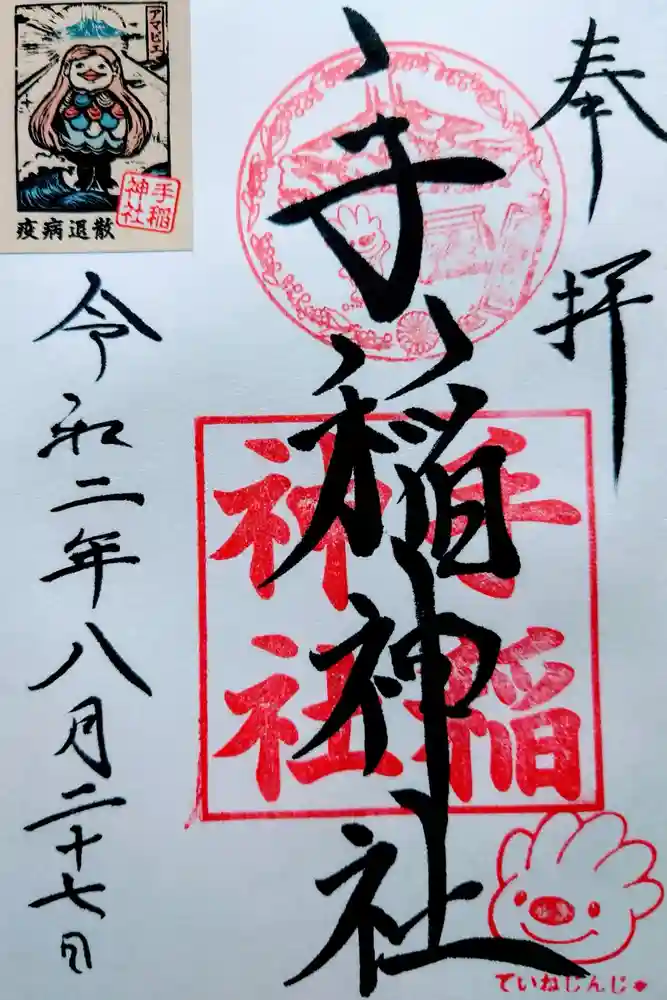 奉拝
手稲神社
手稲
神社
令和二年八月二十七日
アマビエ
手稲
神社
疫病退散
ていねじんじゃ